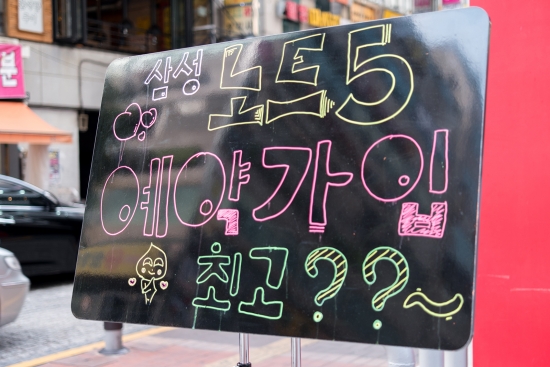 삼성 노트5
예약가입
최고??~